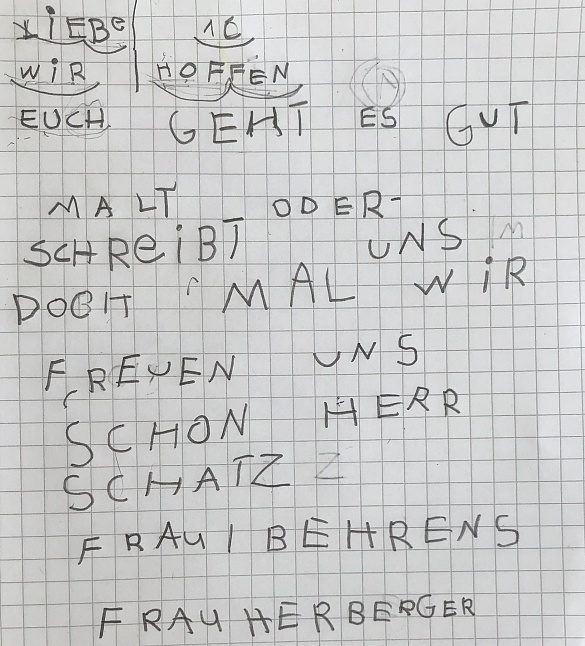 LiEBe 1C
WiR HOFFEN
EUCH GEHT ES GUT
MALT ODER-
SCHReiBT UNS
DOCH MAL WiR
FREUEN UNS
SCHON HERR
SCHATZ
FRAU BEHRENS
FRAU HERBERGER